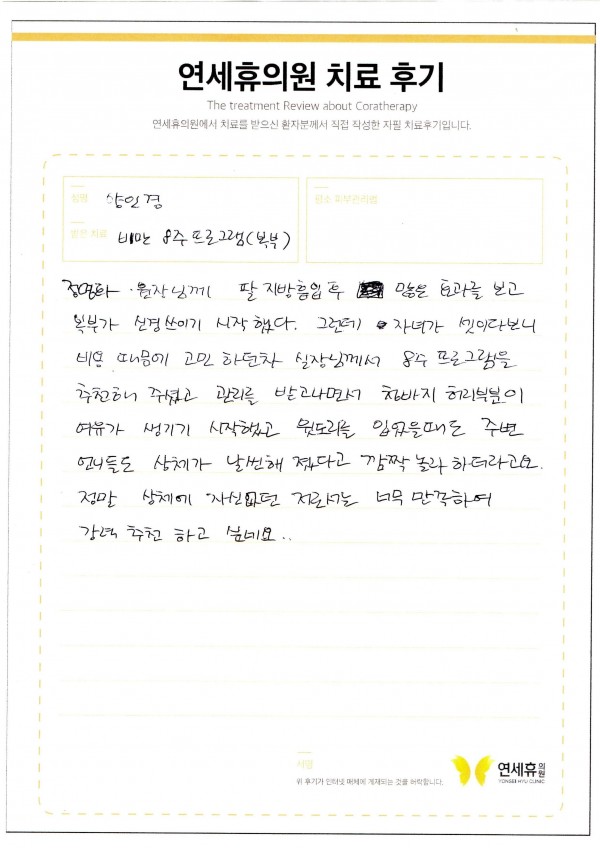 연세휴의원 치료 후기
The treatment Review about Coratherapy
연세휴의원에서 치료를 받으신 환자분께서 직접 작성한 자필 치료후기입니다.
성명 양인경
평소 피부관리법
받은 치료 비만 8주 프로그램(복부)
원장님께 팔 지방흡입 후 많은 효과를 보고
복부가 신경쓰이기 시작했다. 그런데 자녀가 셋이다보니
비용 때문에 고민 하던차 실장님께서 8주 프로그램을
추천해 주셨고 관리를 받고나면서 청바지 허리부분이
여유가 생기기 시작했고 윗도리를 입었을때도 주변
언니들도 상체가 날씬해 졌다고 깜짝 놀라 하더라고요.
정말 상체에 자신없던 저로서는 너무 만족하여
강력 추천 하고 싶네요..
서명
위 후기가 인터넷 매체에 게재되는 것을 허락합니다.
연세휴의원
YONSEI HYU CLINIC